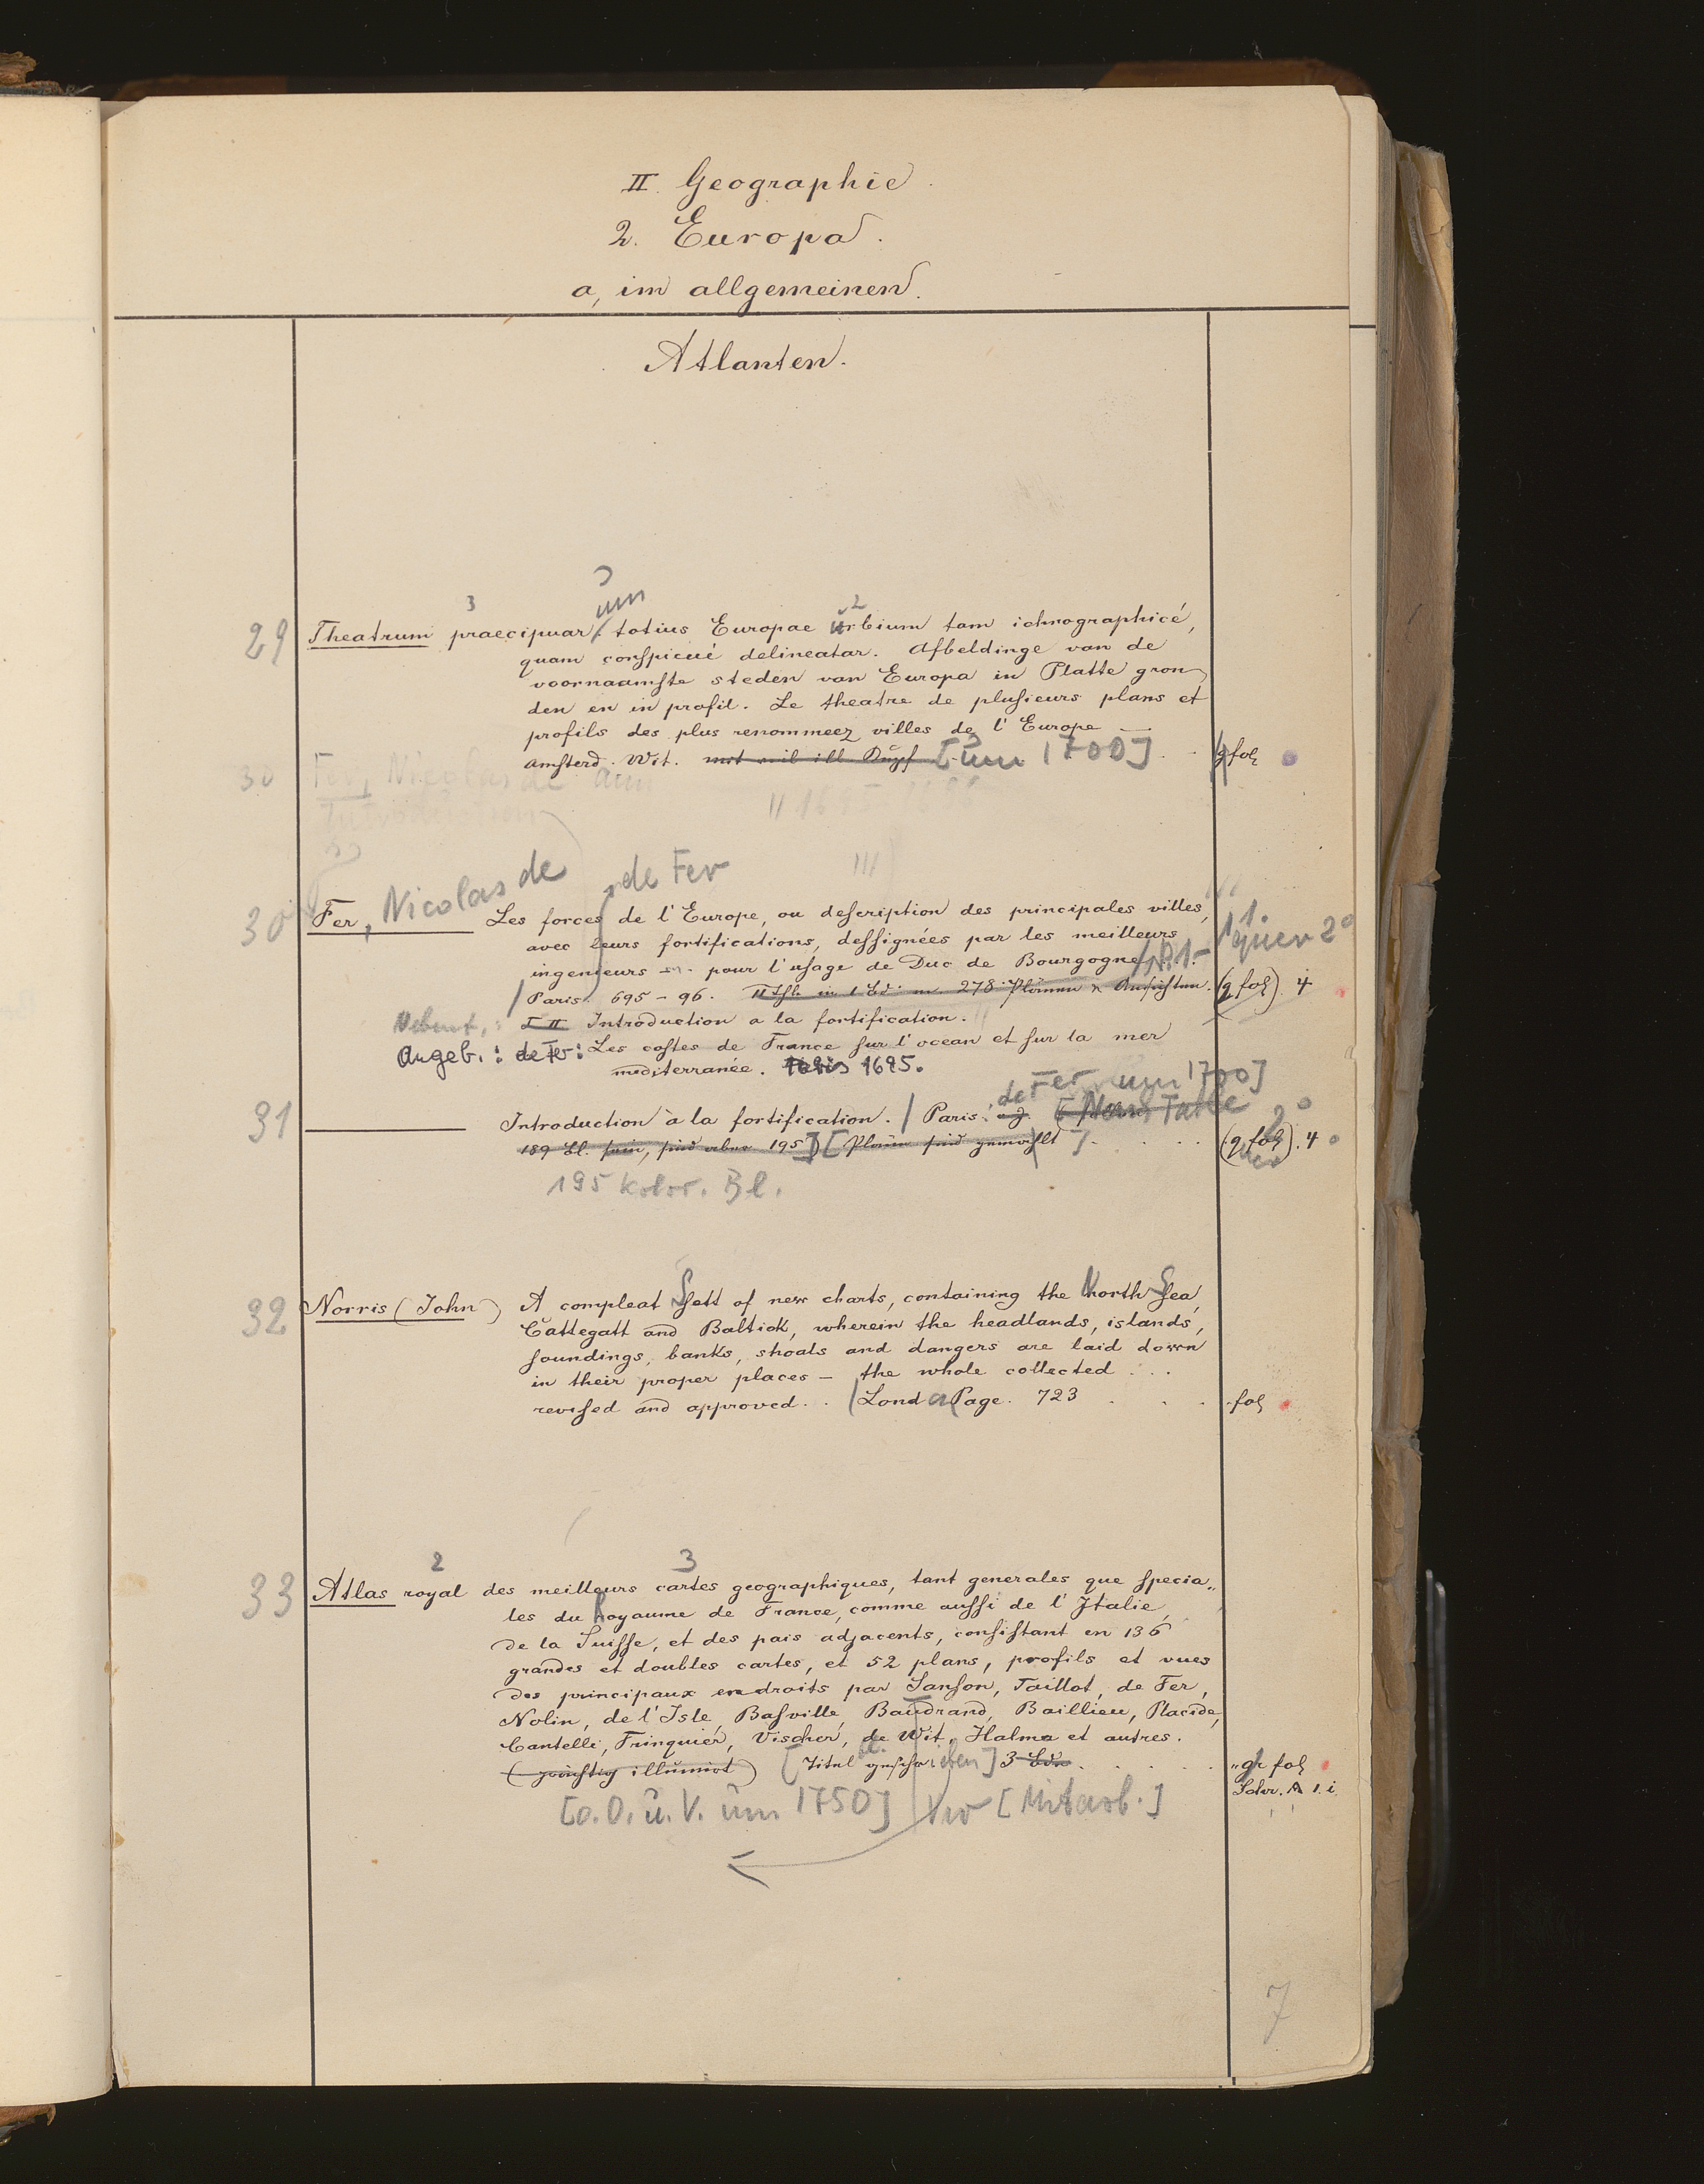 II. Geographie.
2. Europa.
a, im allgemeinen.
Atlanten.
3 um 2
29 Theatrum praecipuar totius Europae urbium tam ichnographicé,
quam conspicué delineatar. Afbeldinge van de
voornaamste steden van Europa in Platte gron-
den en in profil. Le theatre de plusieurs plans et
profils des plus renommeez villes de l'Europe —
Amsterd. Wit. [um 1700] fol
30 Fer, Nicolas de
Introduction
II 1695-1696
de Fer III
30 Fer, Nicolas de Les forces de l'Europe, ou description des principales villes,
avec leurs fortifications, dessignées par les meilleurs 1. quer 2°
ingenieurs pour l'usage de Duc de Bourgogne
Paris. 695-96. II Thle in 1 Bd. m. 278 Plänen u Ansichten. (q fol). 4
I II Introduction a la fortification.
Angeb.: de Fer: Les costes de France sur l'ocean et sur la mer
mediterranée. Paris 1695.
de Fer um 1700]
31 Introduction à la fortification. / Paris: [Nouv Table 2°
189 Bl. sein, sind aber 195)] [Plaene sind gemahlt] (q fol). 4
195 kolor. Bl.
32 Norris (John) A compleat Sett of new charts, containing the North Sea,
Cattegatt and Baltick, wherein the headlands, islands,
soundings, banks, shoals and dangers are laid down
in their proper places — the whole collected . . .
revised and approved. . / Lond a Page. 723 . . . fol
2 3
33 Atlas royal des meilleurs cartes geographiques, tant generales que specia-
les du Royaume de France, comme aussi de l'Italie,
de la Suisse, et des pais adjacents, consistant en 136
grandes et doubles cartes, et 52 plans, profils et vues
des principaux endroits par Sanson, Taillot, de Fer,
Nolin, de l'Isle, Basville, Baudrand, Baillieu, Placide,
Cantelli, Trinquier, Vischer, de Wit, Halma et autres.
(günstig illumirt) [Titel geschrieben] 3 Bde. gr fol
Schr. A 1. i.
[o. O. u. V. um 1750] [Mitarb.]
7